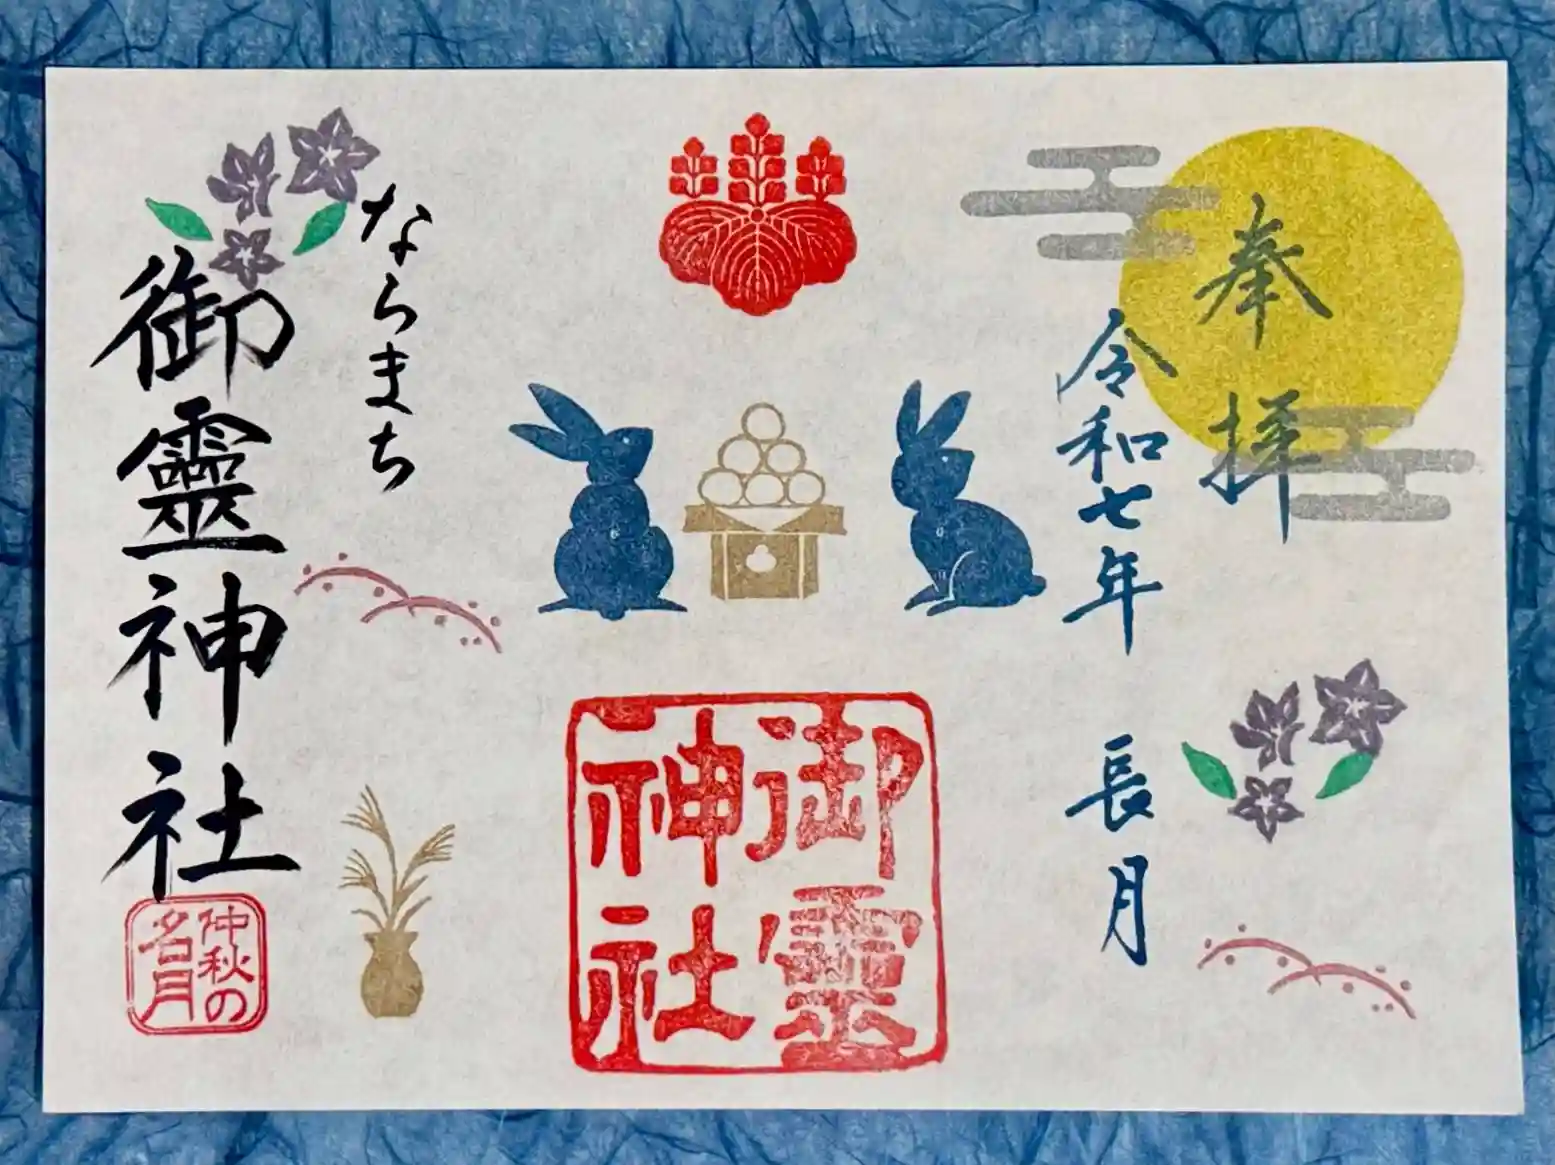 奉拝
令和七年 長月
御靈神社
ならまち
御靈神社
仲秋の
名月